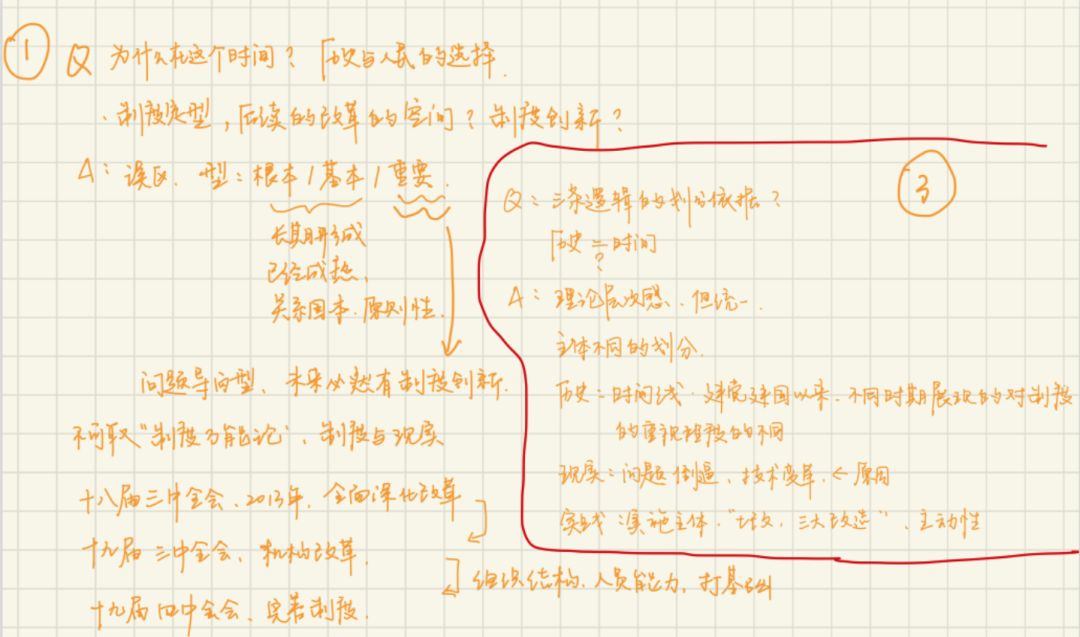 ①
Q 为什么在这个时间？历史与人民的选择.
· 制度定型，后续的改革的空间？制度创新？
A：误区. 型：根本/基本/重要.
长期形成
已经成熟、
关系国本·原则性.
问题导向型、未来必然有制度创新.
不可取"制度万能论"、制度与现实
十八届三中全会、2013年，全面深化改革
十九届三中全会、机构改革.
组织结构、人员能力，打基础
十九届四中全会、完善制度.
③
Q：三条逻辑的划分依据？
历史=时间
?
A：理论层次感、但统一.
主体不同的划分.
历史：时间线·建党建国以来、不同时期展现的对制度
的重视程度的不同
现实：问题倒逼、技术变革、← 原因
实践：实施主体，"土改，三大改造"、主动性